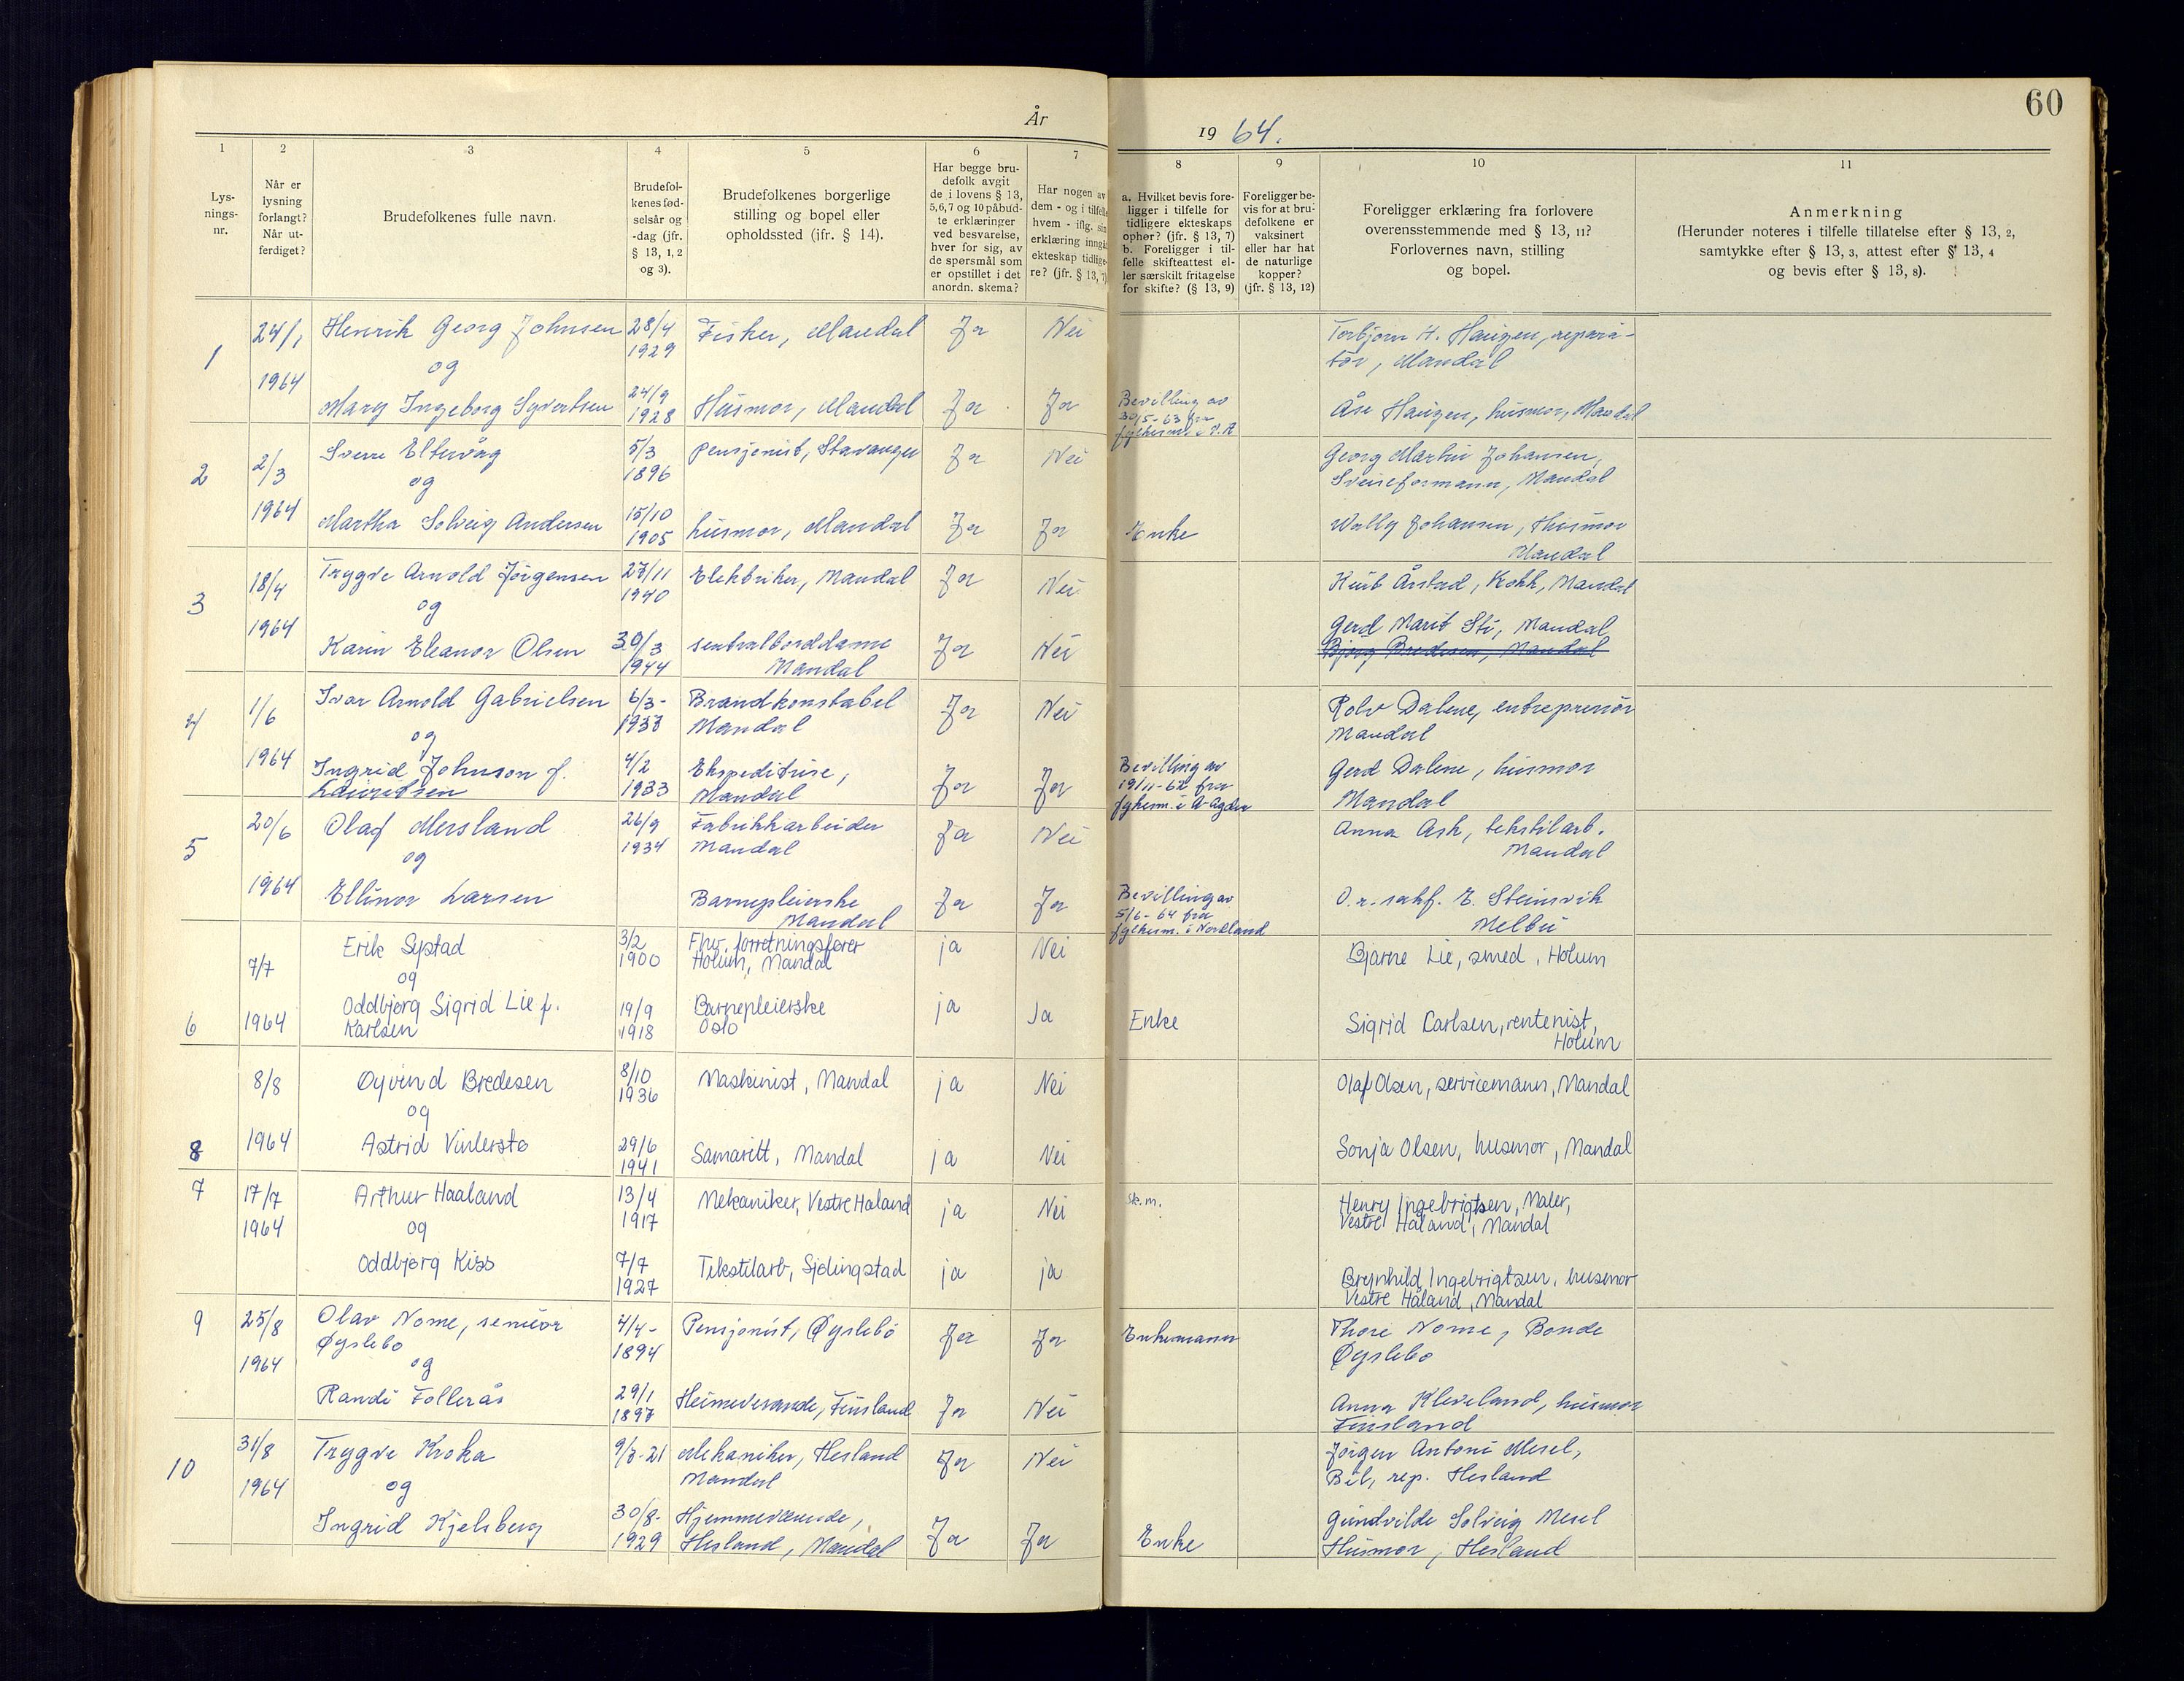 60
År
19 64.
1
2
3
4
5
6
7
8
9
10
11
Lys-
nings-
nr.
Når er
lysning
forlangt?
Når ut-
ferdiget?
Brudefolkenes fulle navn.
Brudefol-
kenes fød-
selsår og
-dag (jfr.
§ 13, 1, 2
og 3).
Brudefolkenes borgerlige
stilling og bopel eller
opholdssted (ifr. § 14).
Har begge bru-
defolk avgit
de i lovens § 13,
5,6,7 og 10 påbud-
te erklæringer
ved besvarelse,
hver for sig, av
de spørsmål som
er opstillet i det
anordn. skema?
Har nogen av
dem - og i tilfelle
hvem - iflg. sin
erklæring inngå
ekteskap tidlige-
re? (jfr. § 13, 7)
a. Hvilket bevis fore-
ligger i tilfelle for
tidligere ekteskaps
ophør? (jfr. § 13, 7)
b. Foreligger i til-
felle skifteattest el-
ler særskilt fritagelse
for skifte? (§ 13, 9)
Foreligger be-
vis for at bru-
defolkene er
vaksinert
eller har hat
de naturlige
kopper?
(jfr. § 13, 12)
Foreligger erklæring fra forlovere
overensstemmende med § 13, 11?
Forlovernes navn, stilling
og bopel.
Anmerkning
(Herunder noteres i tilfelle tillatelse efter § 13, 2,
samtykke efter § 13, 3, attest efter § 13, 4
og bevis efter § 13, 8).
1
24/1
1964
Henrik Georg Johnsen
og
Mary Ingeborg Syvertsen
28/4
1929
24/9
1928
Fisker, Mandal
Husmor, Mandal
Ja
Ja
Nei
Ja
Bevilling av
30/5-63 fra
Torbjørn H. Haugen, repara-
tør, Mandal
Åse Haugen, husmor, Mandal
2
2/3
1964
Sverre Eltervåg
og
Martha Solveig Andersen
5/3
1896
15/10
1905
Pensjonist, Stavanger
husmor, Mandal
Ja
Ja
Nei
Ja
Enke
Georg Martin Johansen,
Sveiseformann, Mandal
Wally Johansen, Husmor
Mandal
3
18/4
1964
Trygve Arnold Jörgensen
og
Karin Eleanor Olsen
27/11
1940
30/3
1944
Elektriker, Mandal
sentralborddame
Mandal
Ja
Ja
Nei
Nei
Knut Årstad, Kokk, Mandal
Gerd Marit Sti, Mandal
4
1/6
1964
Ivar Arnold Gabrielsen
og
Ingrid Johnson f.
Lauritsen
6/3-
1933
4/2
1933
Brandkonstabel
Mandal
Ekspeditrise,
Mandal
Ja
Ja
Nei
Ja
Bevilling av
19/11-62 fra
fylkesm. i A-Agder
Rolv Dalene, entreprenör
Mandal
Gerd Dalene, husmor
Mandal
5
20/6
1964
Olaf Mersland
og
Ellinor Larsen
26/9
1934
Fabrikkarbeider
Mandal
Barnepleierske
Mandal
Ja
Ja
Nei
Ja
Bevilling av
5/6-64 fra
fylkesm. i Nordland
Anna Ask, tekstilarb.
Mandal
O.r.sakf. E. Steinsvik
Melbu
6
7/7
1964
Erik Systad
og
Oddbjørg Sigrid Lie f.
Karlsen
3/2
1900
19/9
1918
Fhv. forretningsfører
Holum, Mandal
Barnepleierske
Oslo
ja
ja
Nei
Ja
Enke
Bjarne Lie, smed, Holum
Sigrid Carlsen, rentenist,
Holum
8
8/8
1964
Øyvind Bredesen
og
Astrid Vinlerstø
8/10
1936
29/6
1941
Maskinist, Mandal
Samaritt, Mandal
ja
ja
Nei
Nei
Olaf Olsen, servicemann, Mandal
Sonja Olsen, husmor, Mandal
7
17/7
1964
Arthur Haaland
og
Oddbjørg Kiss
13/4
1917
7/7
1927
Mekaniker, Vestre Haland
Tekstilarb, Sjølingstad
ja
ja
Nei
ja
sk.m.
Henry Ingebrigtsen, Maler,
Vestre Håland, Mandal
Brynhild Ingebrigtsen, husmor
Vestre Håland, Mandal
9
25/8
1964
Olav Nome, senior
Øyslebo
og
Randi Follerås
4/4-
1894
29/1
1897
Pensjonist, Øyslebö
Heimeverande, Finsland
Ja
Ja
Ja
Nei
Enkemann
Thore Nome, Bonde
Øyslebo
Anna Kleveland, husmor
Finsland
10
31/8
1964
Trygve Kroka
og
Ingrid Kjelsberg
9/8-21
30/8-
1929
Mekaniker, Hesland
Mandal
Hjemmeværende,
Hesland, Mandal
Ja
Ja
Nei
Ja
Enke
Jörgen Antoni Mesel,
Bil, rep. Hesland
Gundvilde Solveig Mesel
Husmor, Hesland